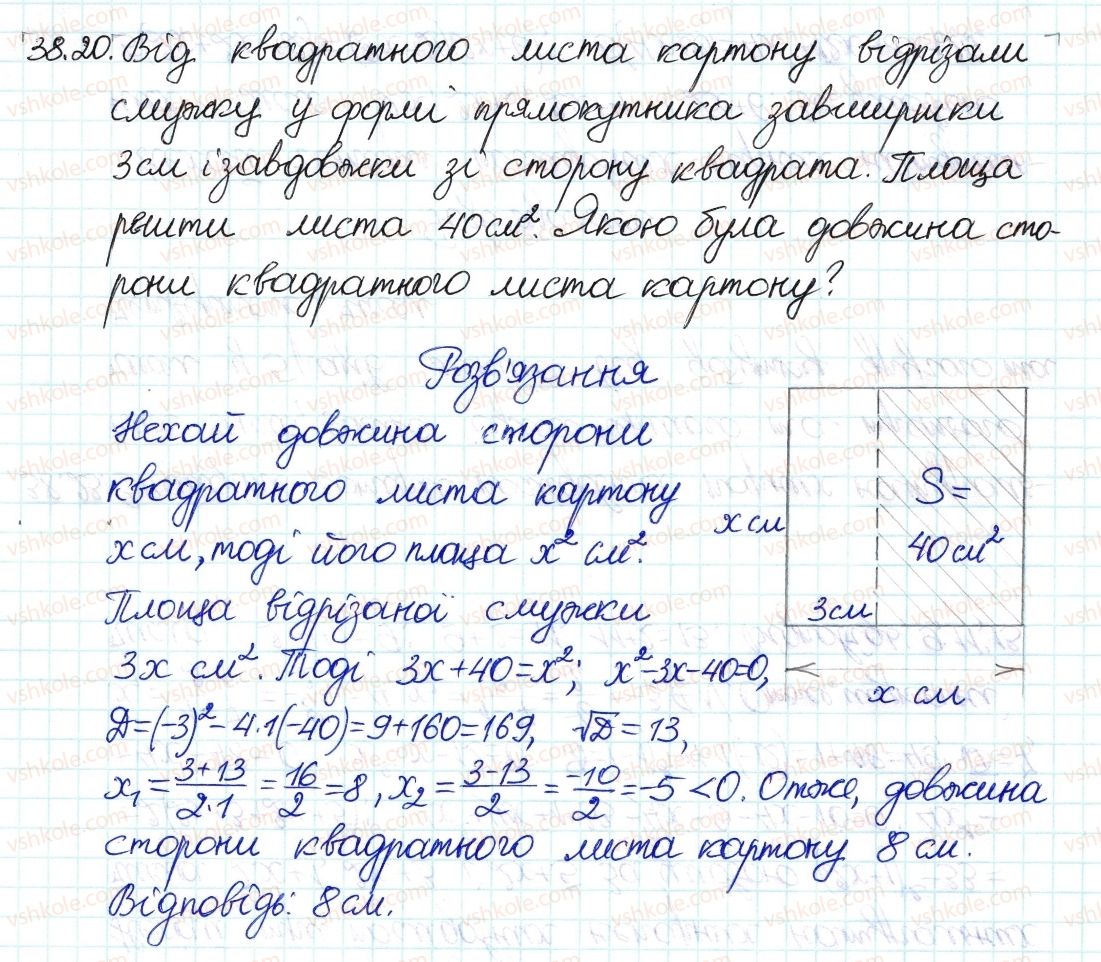 38.20. Від квадратного листа картону відрізали
смужку у формі прямокутника завширшки
3см і завдовжки зі сторону квадрата. Площа
решти листа 40 см². Якою була довжина сто-
рони квадратного листа картону?
Розв'язання
Нехай довжина сторони
квадратного листа картону
x см, тоді його площа x² см².
Площа відрізаної смужки
3x см². Тоді 3x+40=x²; x²-3x-40=0,
D=(-3)²-4·1(-40)=9+160=169, √D=13,
x₁=(3+13)/(2·1)=16/2=8, x₂=(3-13)/2=-10/2=-5<0. Отже, довжина
сторони квадратного листа картону 8 см.
Відповідь: 8 см.
x см
S=
40 см²
3см
x см
vshkole.com